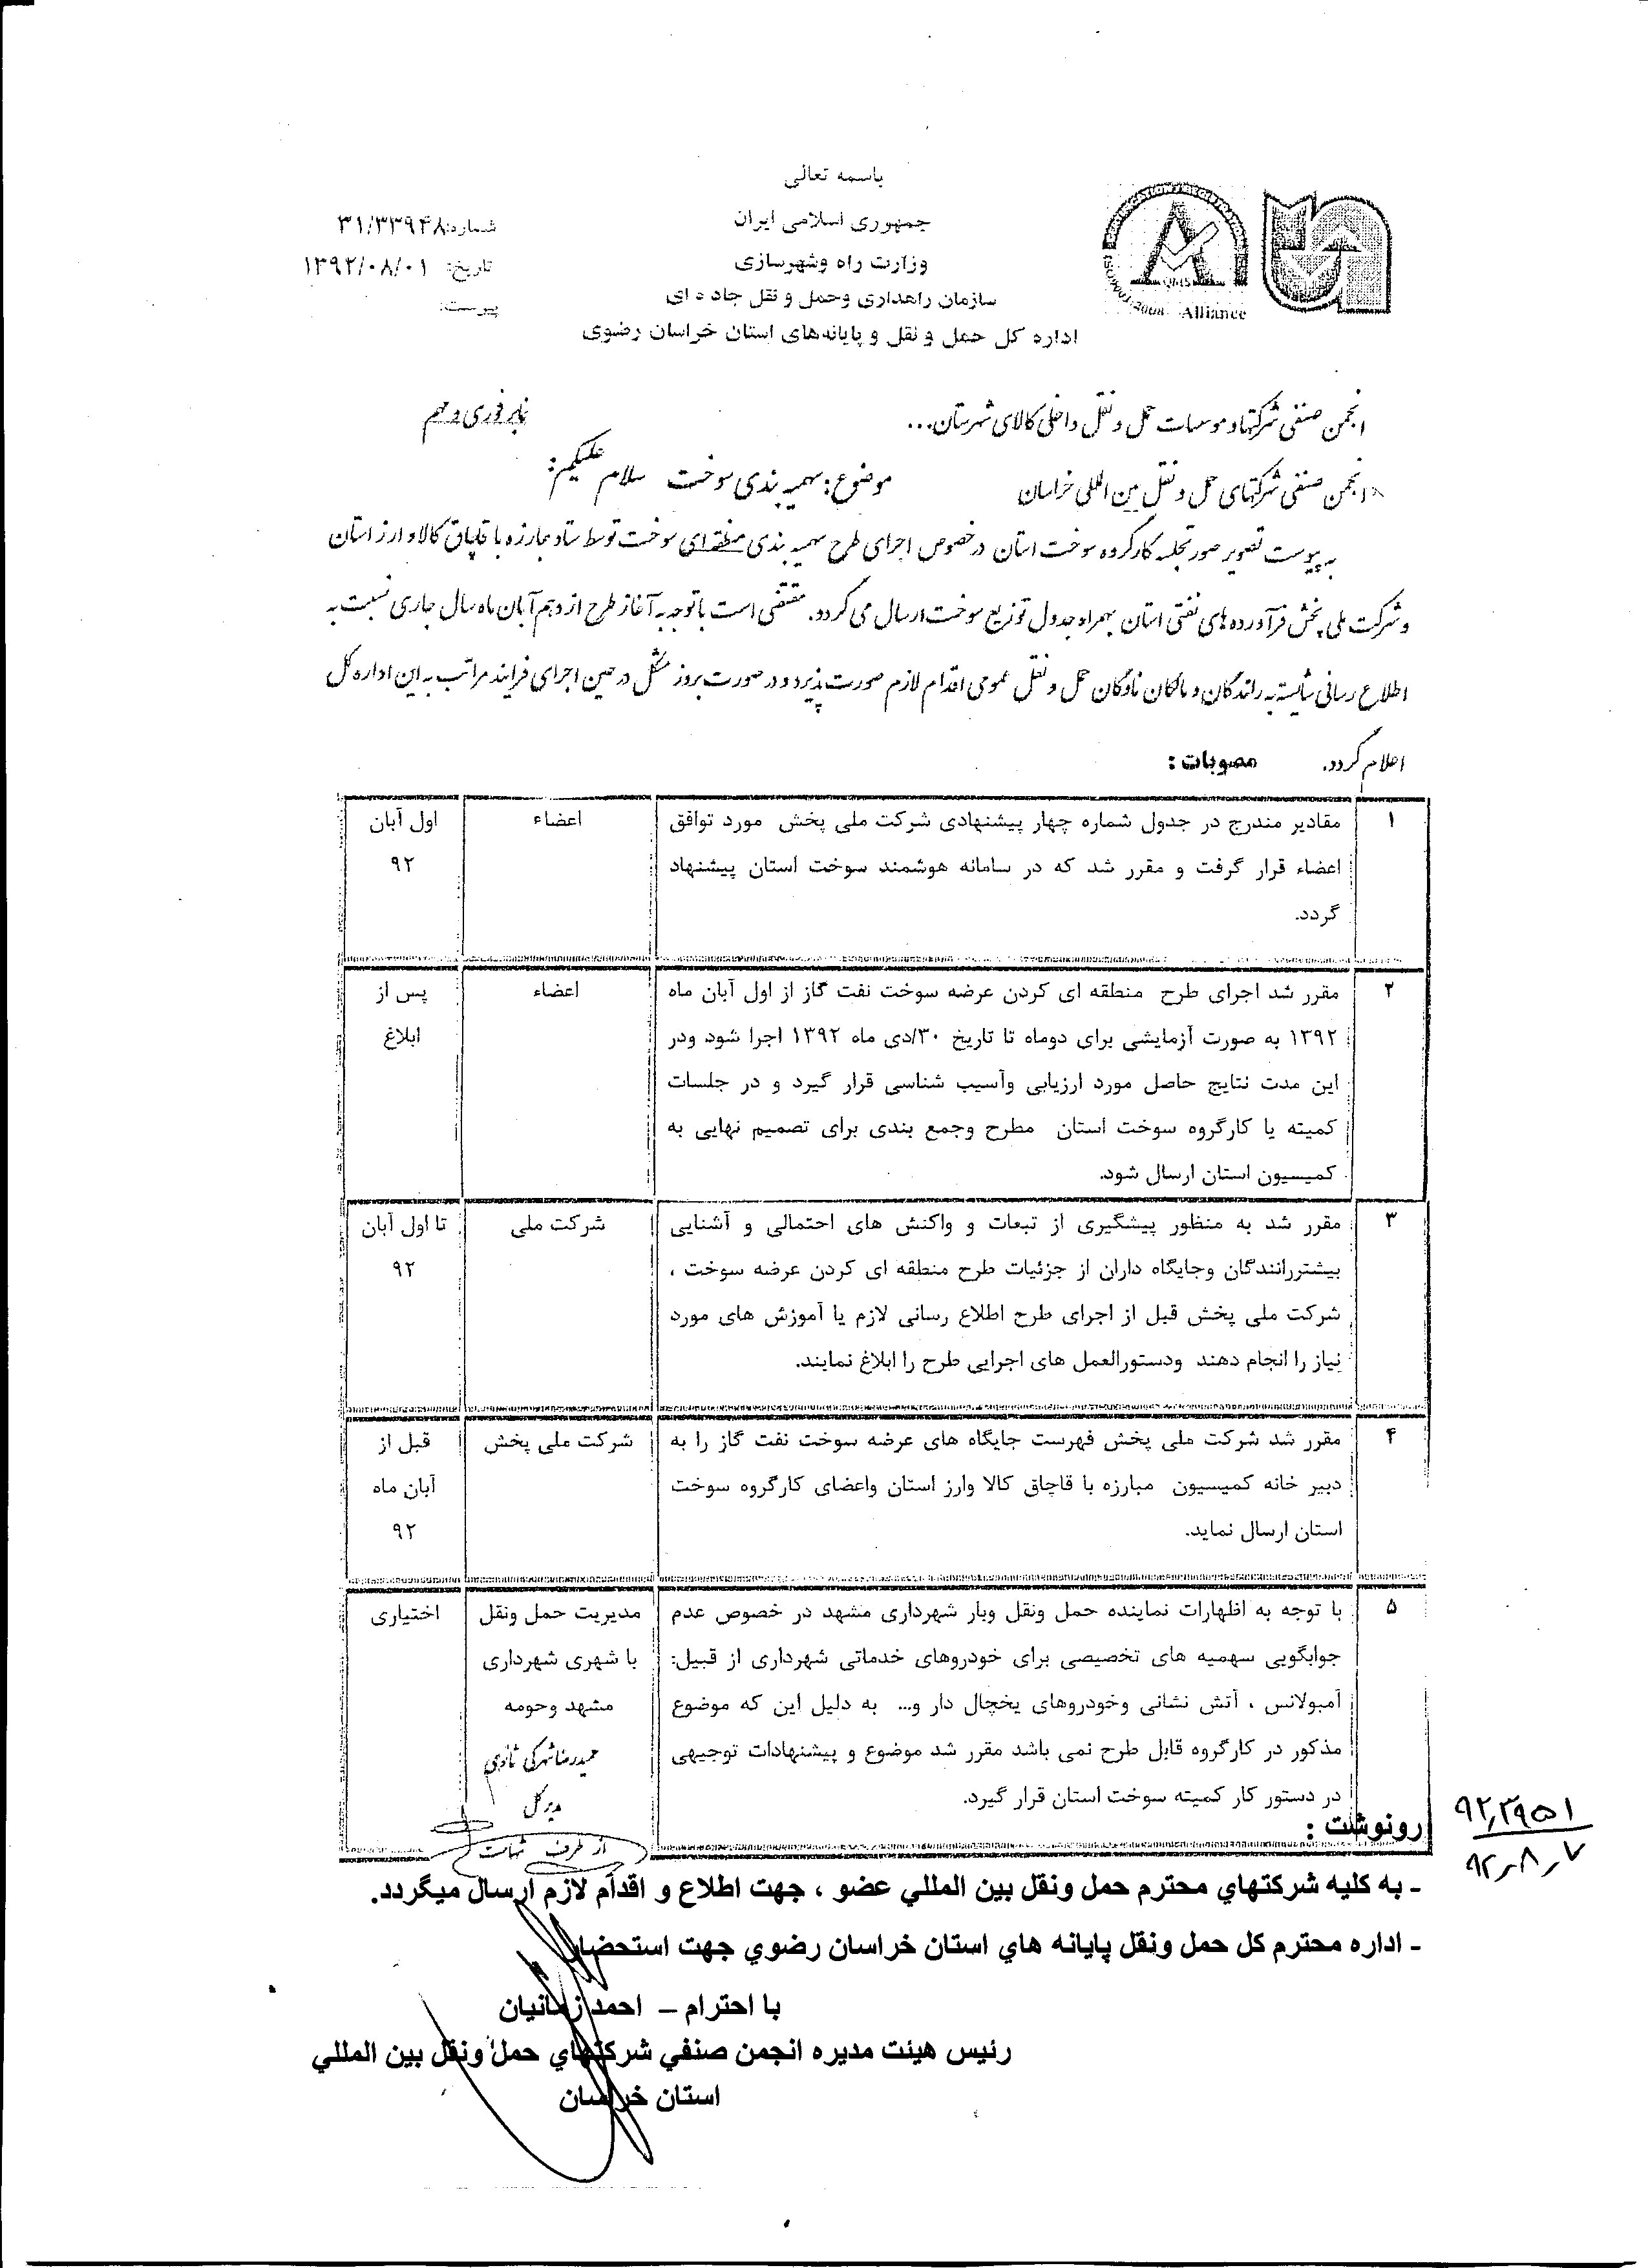 باسمه تعالی
جمهوری اسلامی ایران
وزارت راه وشهرسازی
سازمان راهداری وحمل و نقل جاده ای
اداره کل حمل و نقل و پایانه‌های استان خراسان رضوی
شماره: ۳۱/۳۳۹۴۸
تاریخ: ۱۳۹۲/۰۸/۰۱
پیوست:
QMS
ISO 9001:2008 Alliance
انجمن صنفی شرکتها و موسسات حمل و نقل داخلی کالای شهرستان...
نمابر فوری و مهم
انجمن صنفی شرکتهای حمل و نقل بین المللی خراسان
موضوع: سهمیه بندی سوخت
سلام علیکم:
به پیوست تصویر صورتجلسه کارگروه سوخت استان درخصوص اجرای طرح سهمیه بندی منطقه ای سوخت توسط ستاد مبارزه با قاچاق کالا و ارز استان
و شرکت ملی پخش فرآورده های نفتی استان بهمراه جدول توزیع سوخت ارسال می گردد. مقتضی است با توجه به آغاز طرح از دهم آبان ماه سال جاری نسبت به
اطلاع رسانی شایسته به رانندگان و مالکان ناوگان حمل و نقل عمومی اقدام لازم صورت پذیرد و در صورت بروز مشکل در حین اجرای فرایند مراتب به این اداره کل
اعلام گردد. مصوبات :
۱ مقادیر مندرج در جدول شماره چهار پیشنهادی شرکت ملی پخش مورد توافق اعضاء اول آبان
اعضاء قرار گرفت و مقرر شد که در سامانه هوشمند سوخت استان پیشنهاد ۹۲
گردد.
۲ مقرر شد اجرای طرح منطقه ای کردن عرضه سوخت نفت گاز از اول آبان ماه اعضاء پس از
۱۳۹۲ به صورت آزمایشی برای دوماه تا تاریخ ۳۰/دی ماه ۱۳۹۲ اجرا شود ودر ابلاغ
این مدت نتایج حاصل مورد ارزیابی وآسیب شناسی قرار گیرد و در جلسات
کمیته یا کارگروه سوخت استان مطرح وجمع بندی برای تصمیم نهایی به
کمیسیون استان ارسال شود.
۳ مقرر شد به منظور پیشگیری از تبعات و واکنش های احتمالی و آشنایی شرکت ملی تا اول آبان
بیشتررانندگان وجایگاه داران از جزئیات طرح منطقه ای کردن عرضه سوخت ، ۹۲
شرکت ملی پخش قبل از اجرای طرح اطلاع رسانی لازم یا آموزش های مورد
نیاز را انجام دهند ودستورالعمل های اجرایی طرح را ابلاغ نمایند.
۴ مقرر شد شرکت ملی پخش فهرست جایگاه های عرضه سوخت نفت گاز را به شرکت ملی پخش قبل از
دبیر خانه کمیسیون مبارزه با قاچاق کالا وارز استان واعضای کارگروه سوخت آبان ماه
استان ارسال نماید. ۹۲
۵ با توجه به اظهارات نماینده حمل ونقل وبار شهرداری مشهد در خصوص عدم مدیریت حمل ونقل اختیاری
جوابگویی سهمیه های تخصیصی برای خودروهای خدماتی شهرداری از قبیل: با شهری شهرداری
آمبولانس ، آتش نشانی وخودروهای یخچال دار و... به دلیل این که موضوع مشهد وحومه
مذکور در کارگروه قابل طرح نمی باشد مقرر شد موضوع و پیشنهادات توجیهی
در دستور کار کمیته سوخت استان قرار گیرد.
مدیرکل
از طرف
رونوشت :
۹۲٫۳۹۵۱
۹۲٫۸٫۷
- به کلیه شرکتهاي محترم حمل ونقل بین المللي عضو ، جهت اطلاع و اقدام لازم ارسال میگردد.
- اداره محترم کل حمل ونقل پایانه هاي استان خراسان رضوي جهت استحضار
با احترام – احمد زمانیان
رئیس هیئت مدیره انجمن صنفي شرکتهاي حمل ونقل بین المللي
استان خراسان